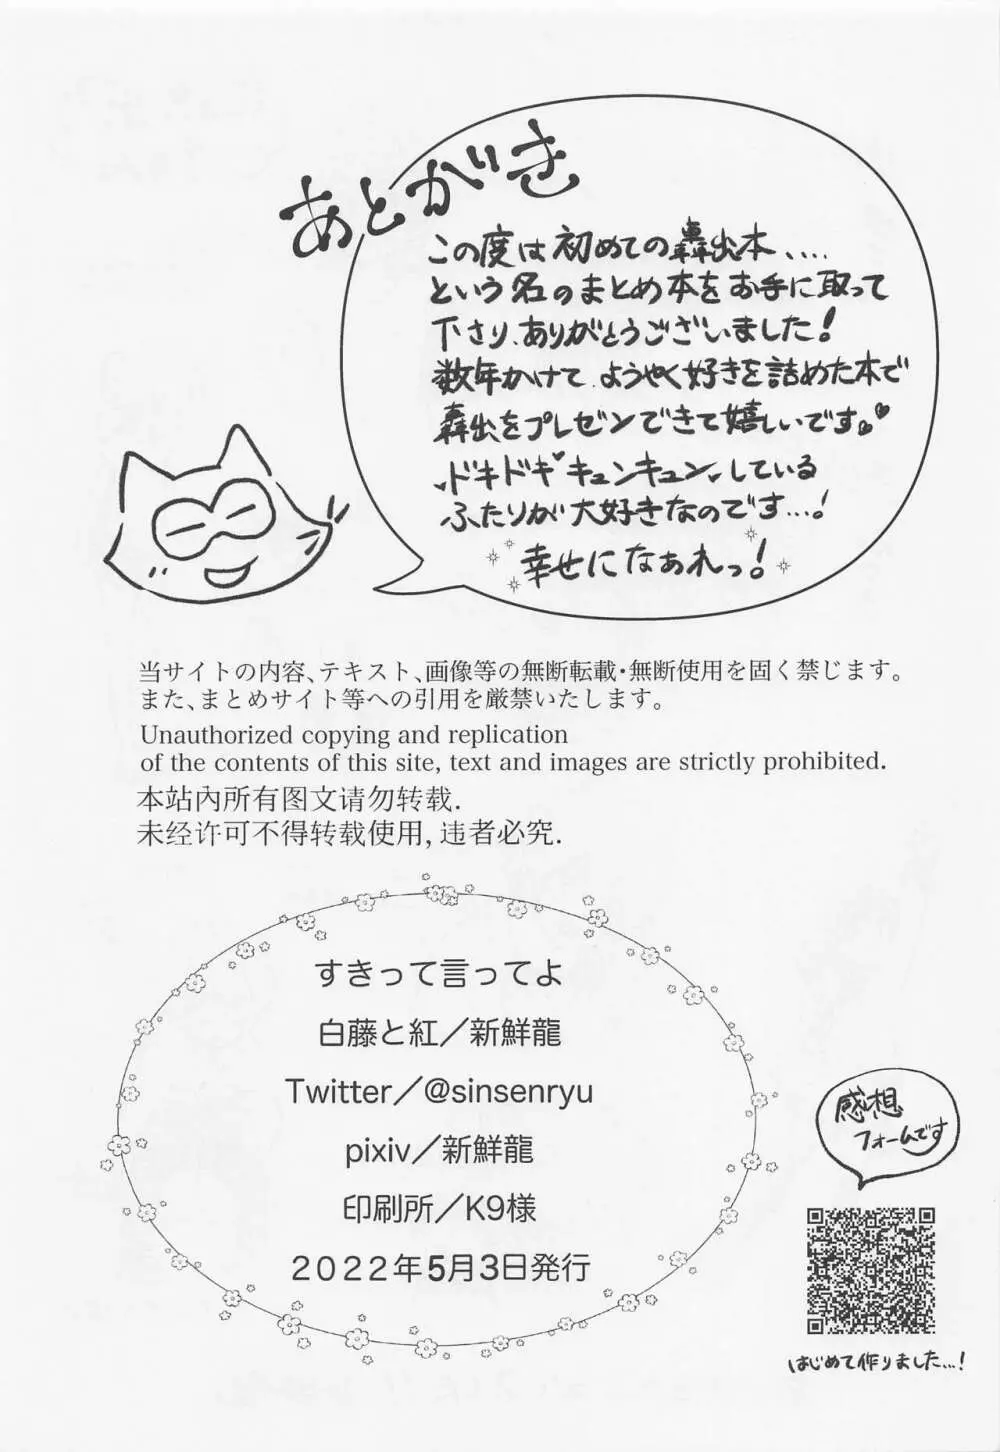 あとがき
この度は初めての轟出本....
という名のまとめ本をお手に取って
下さり、ありがとうございました!
数年かけて、ようやく好きを詰めた本で
轟出をプレゼンできて嬉しいです。
ドキドキキュンキュンしている
ふたりが大好きなのです...!
幸せになぁれっ!
当サイトの内容、テキスト、画像等の無断転載・無断使用を固く禁じます。
また、まとめサイト等への引用を厳禁いたします。
Unauthorized copying and replication
of the contents of this site, text and images are strictly prohibited.
本站內所有图文请勿转载.
未经许可不得转载使用,违者必究.
すきって言ってよ
白藤と紅／新鮮龍
Twitter／@sinsenryu
pixiv／新鮮龍
印刷所／K9様
２０２２年５月３日発行
感想
フォームです
はじめて作りました...!